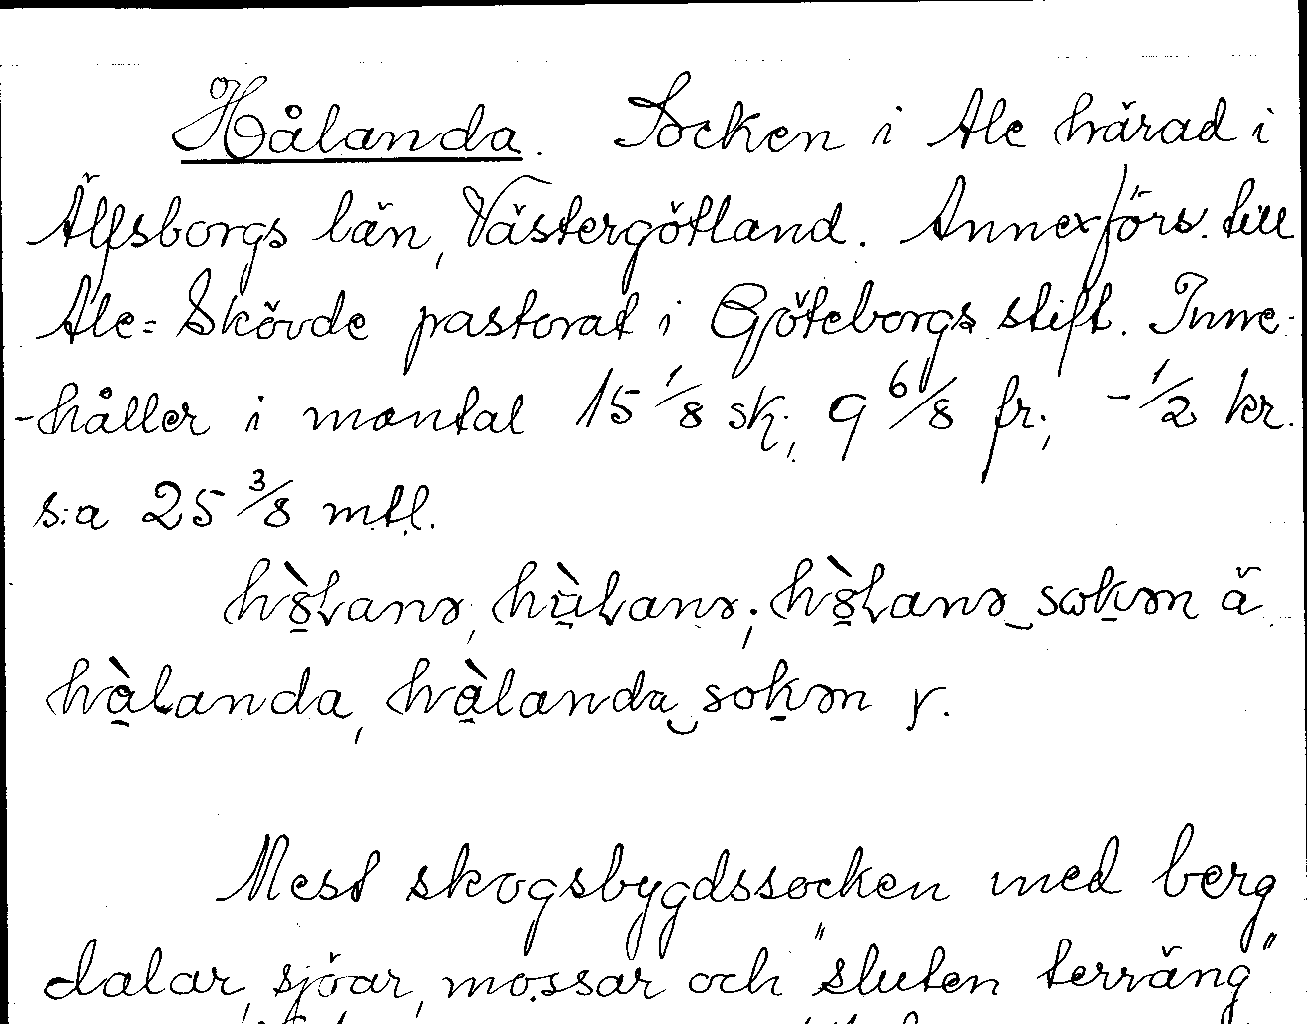 Hålanda. Socken i Ale härad i
Älfsborgs län, Västergötland. Annexförs. till
Ale=Skövde pastorat i Göteborgs stift. Inne-
-håller i mantal 15 1/8 sk; 9 6/8 fr; - 1/2 kr.
s:a 25 3/8 mtl.
sokən ä
hàlanda, hàlanda sokən y.
Mest skogsbygdssocken med berg
dalar, sjöar, mossar och "sluten terräng"